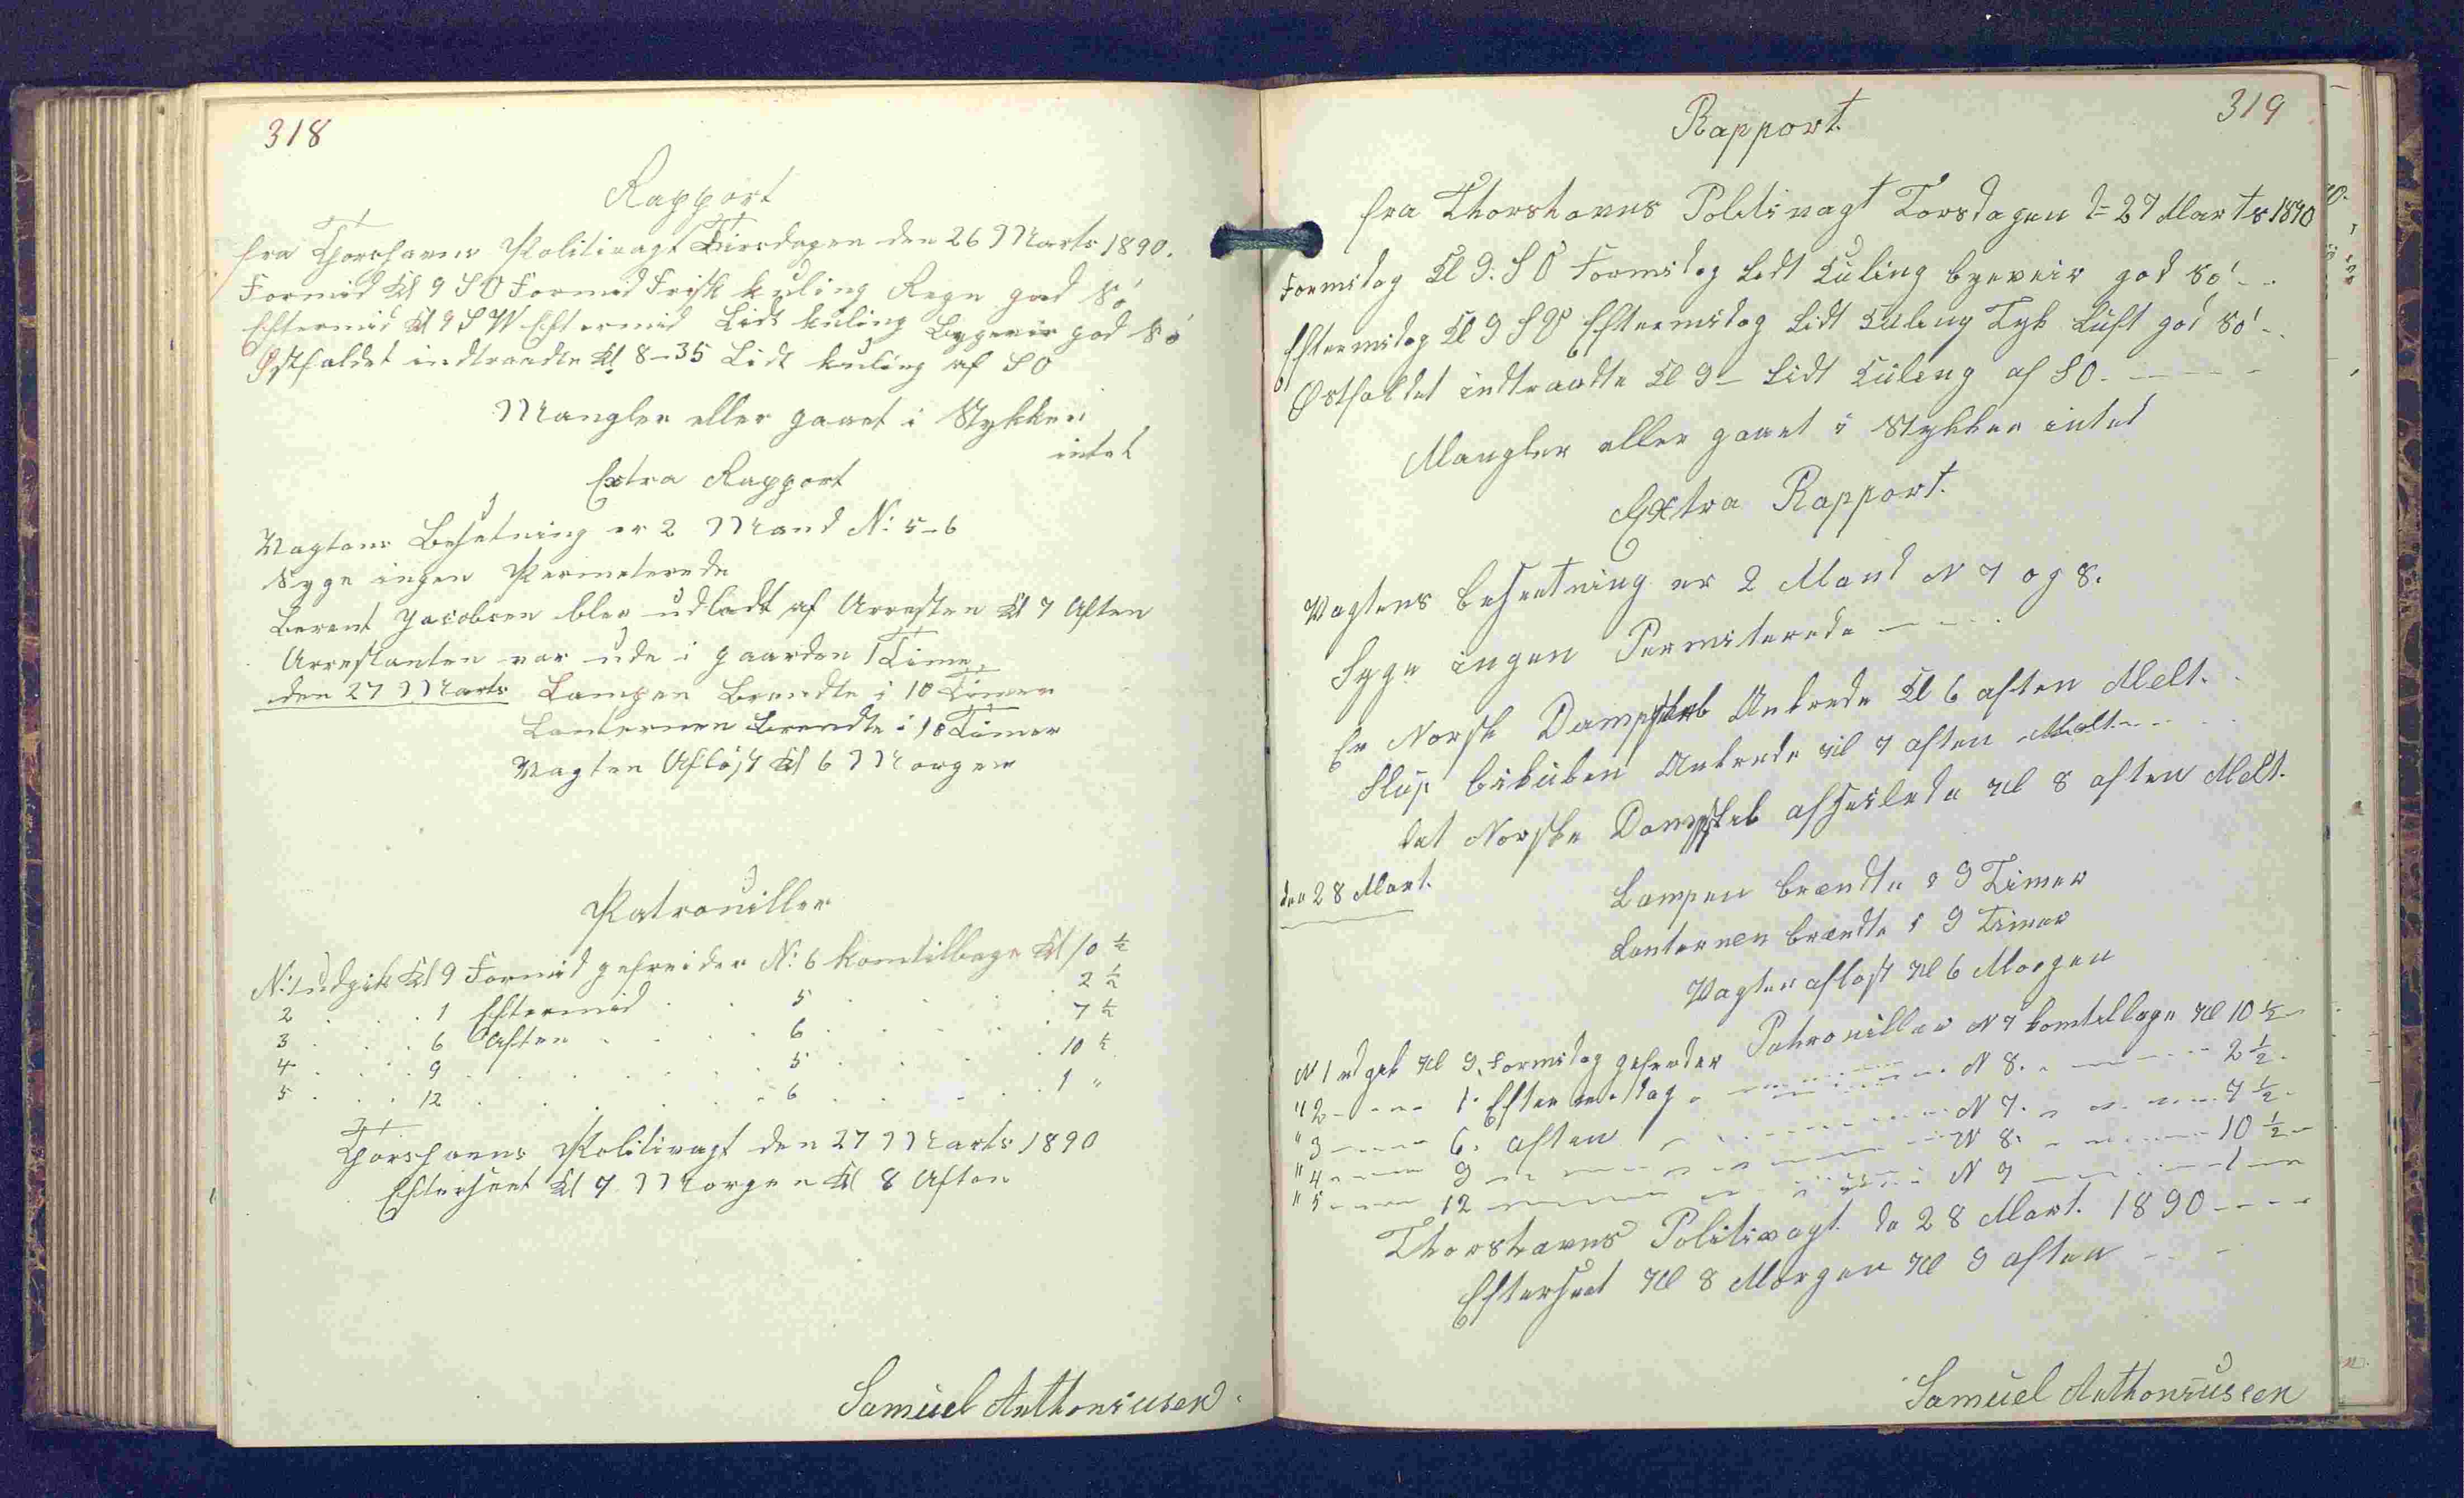 318
Rapport
fra Thorshavns Politivagt Tirsdagen den 26 Marts 1890.
Formid Kl 9 SO Formid Frisk kuling Regn god Sö
Eftermid Kl 9 SW Eftermid Lidt kuling Bygeveir god Sö
Østfaldet indtraadte Kl 8-35 Lidt kuling af SO
Mangler eller gaaet i Stykker
intet
Extra Rapport
Vagtens Besetning er 2 Mand N: 5-6
Syge ingen Permeterede
Berent Jacobsen blev udladt af Arresten Kl 7 Aften
Arrestanten var ude i gaarden 1 Time
den 27 Marts Lampen Brendte i 10 Timer
Lanternen Brendte i 10 Timer
Vagten Afløst Kl 6 Morgen
Patrouiller
N: 1 udgik Kl 9 Formid gefreider N: 6 kom tilbage Kl 10 ½
2 . . . 1 Eftermid . . 5 . . . 2 ½
3 . . . 6 Aften . . . 6 . . . 7 ½
4 . . . 9 . . . . . 5 . . . 10 ½
5 . . . 12 . . . . . 6 . . . 1 "
Thorshavns Politivagt den 27 Marts 1890
Efterseet Kl 7 Morgen Kl 8 Aften
Samuel Anthoniusen
319
Rapport.
fra Thorshavns Politivagt Torsdagen d= 27 Marts 1890
Formidag Kl 9. SO Formidag Lidt Kuling byeveir god Sö
Eftermidag Kl 9 SO Eftermidag Lidt Kuling Tyk Luft god Sö
Østfaldet indtraadte Kl 9 - Lidt Kuling af SO.
Mangler eller gaaet i Stykker intet
Extra Rapport.
Vagtens besaetning er 2 Mand N 7 og 8.
Syge ingen Permiterede
En Norsk Dampskib Ankrede Kl 6 aften Melt.
Slup bikuben Ankrede Kl 7 aften Melt
det Norske Dampskib afseilede Kl 8 aften Melt.
den 28 Mart. Lampen brændte i 9 Timer
Lanternen brændte i 9 Timer
Vagten afløst Kl 6 Morgen
Patrouiller
N 1 udgik Kl 9. Formidag gefreder N 7 kom tilbage Kl 10 ½
" 2 - - - 1. Eftermidag - - - N 8. - - - 2 ½
" 3 - - - 6. aften - - - N 7. - - - 7 ½
" 4 - - - 9 - - - N 8. - - - 10 ½
" 5 - - - 12 - - - N 7 - - - 1
Thorshavns Politivagt de 28 Mart. 1890
Efterseet Kl 8 Morgen Kl 9 aften
Samuel Anthoniussen